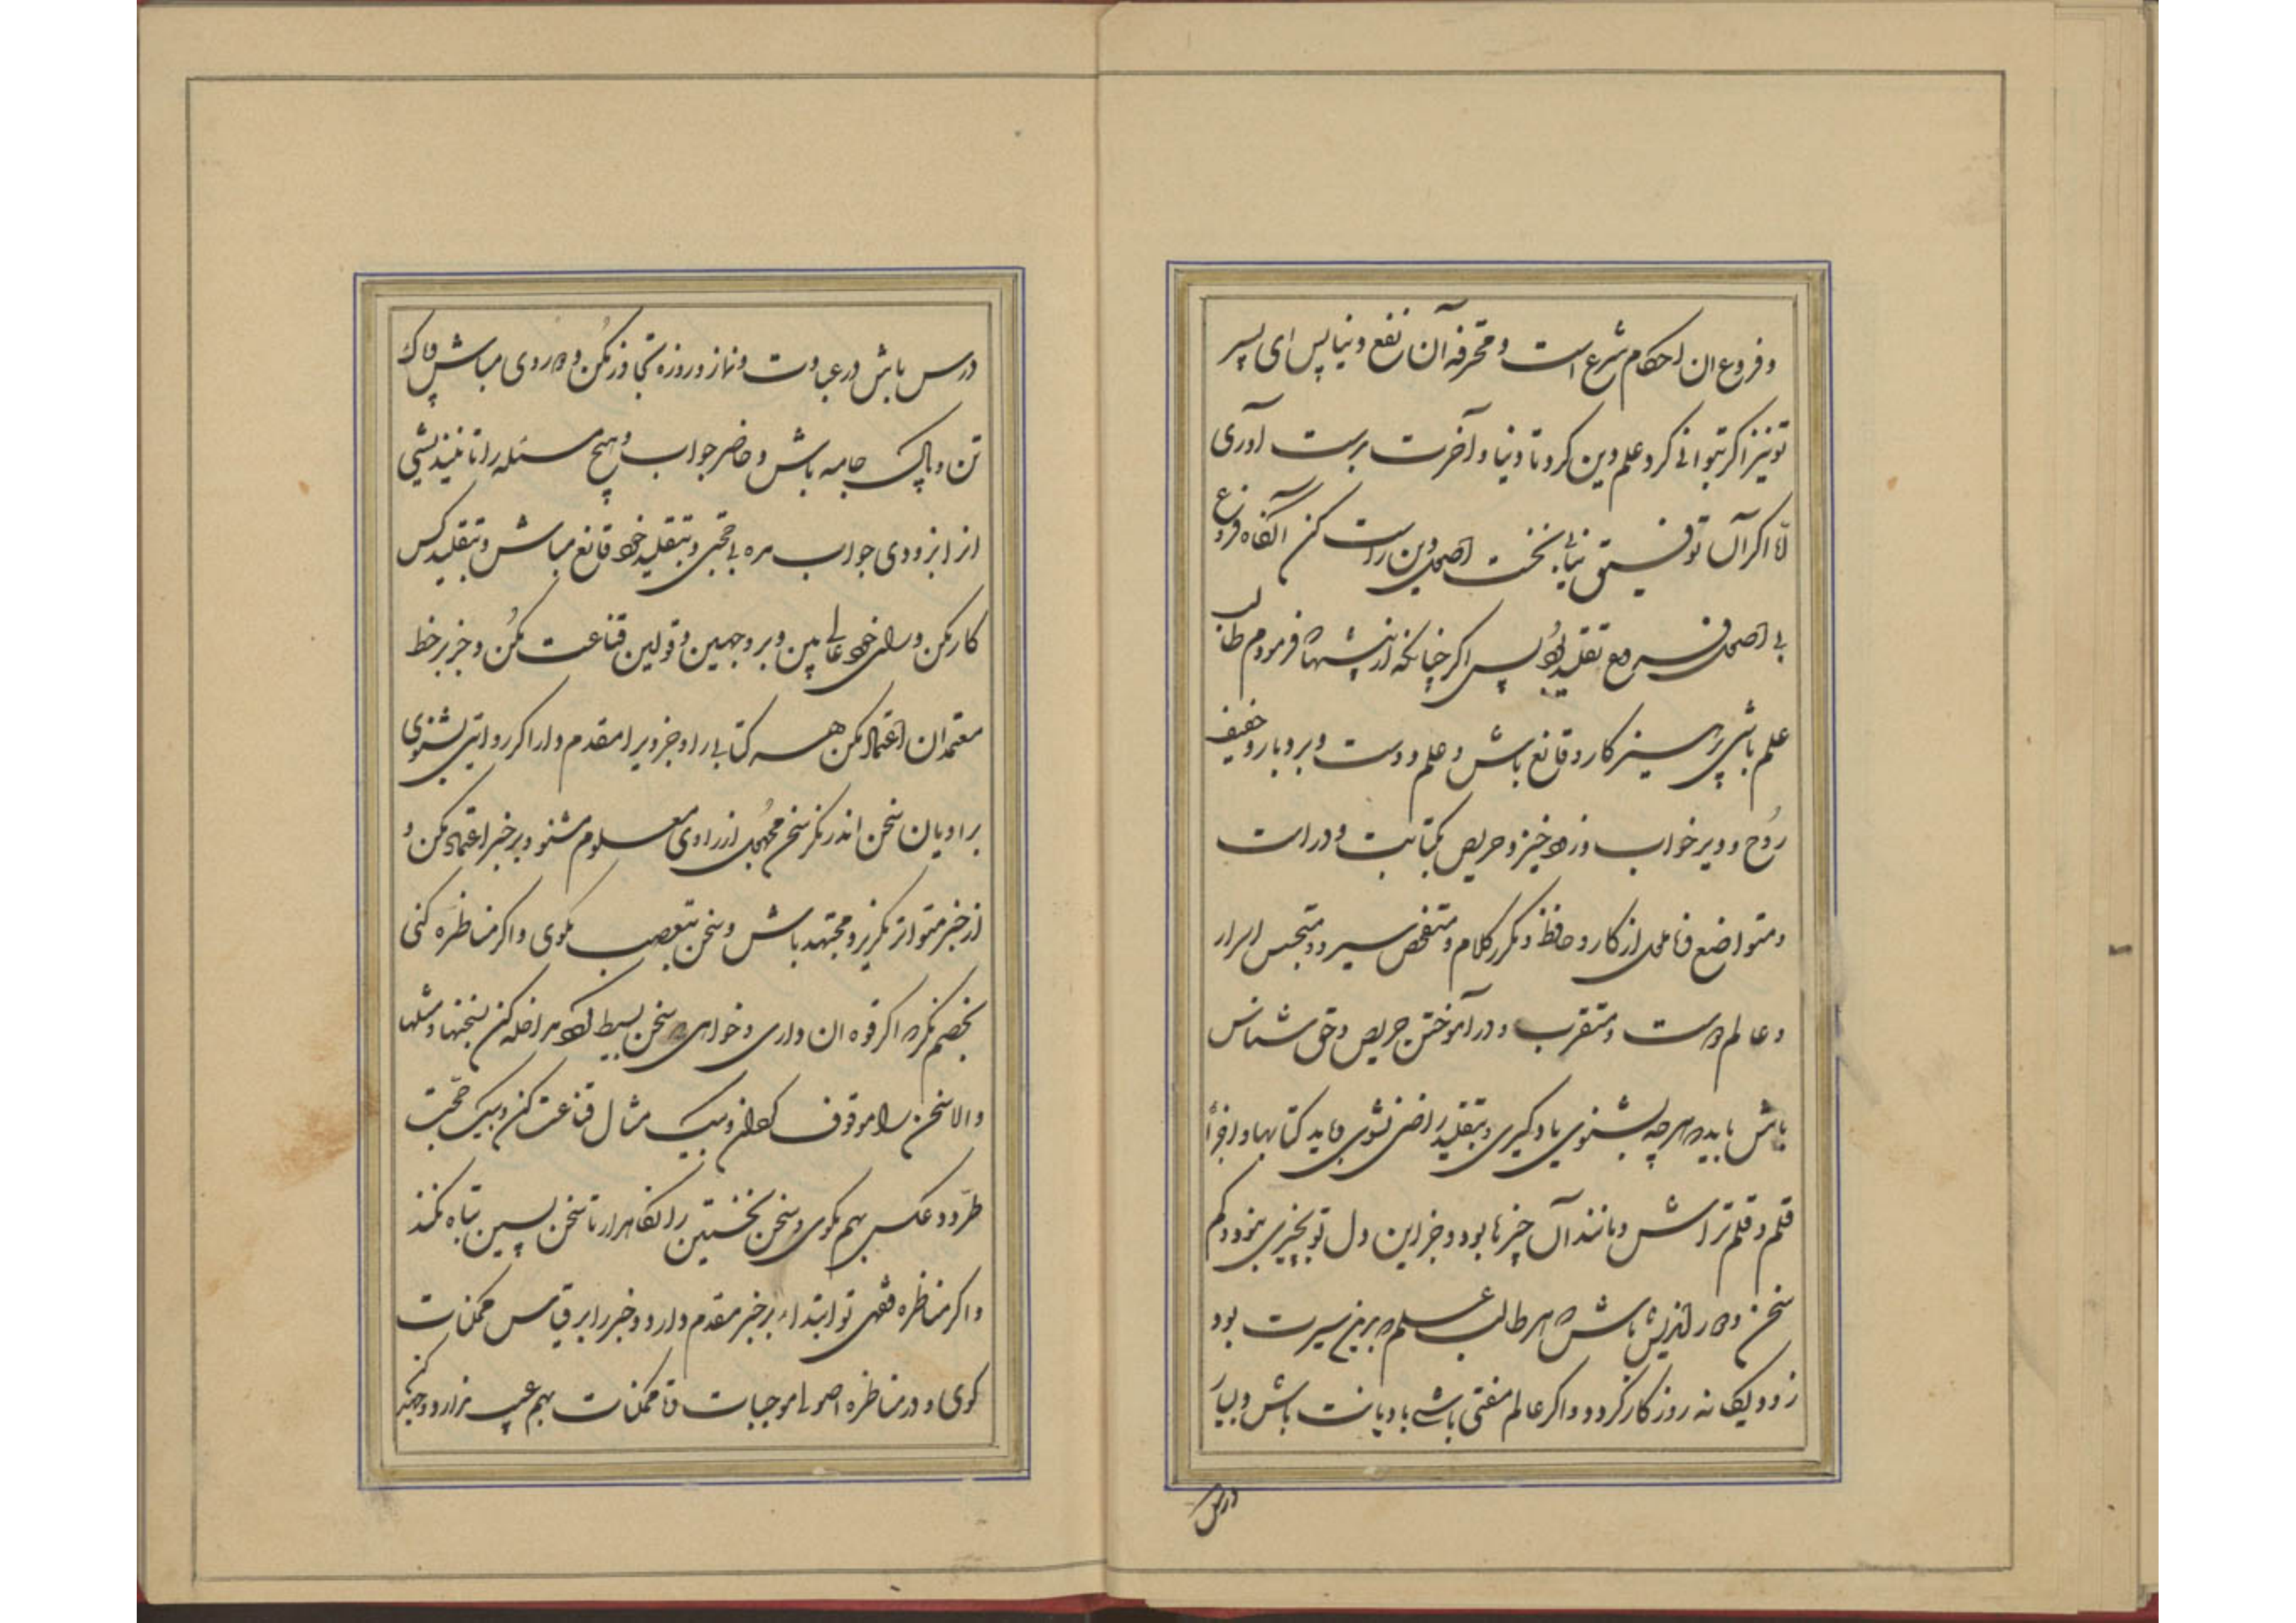 و فروع ان احکام شرع است و محرفه آن نفع دنیا پس ای پسر
تو نیز اگر بتوانی گرد علم دین گرد تا دنیا و آخرت بدست آوری
امّا اگر آن توفیق نیابی نخست اصول دین راست کن آنگاه فروع
بی اصول فروع تقلید بود پس اگر چنانکه از پیشها فرمودم طالب
علم باشی پرهیزکار و قانع باش و علم دوست و بردبار و خفیف
رُوح و دیر خواب و زود خیز و حریص بکتابت و دراست
و متواضع و نا ملول از کار و حافظ و مکرر کلام و متفحص سیر و متجسس اسرار
و عالم دوست و متقرب و در آموختن حریص و حق شناس
باش باید هر چه بشنوی یاد گیری و بتقلید راضی نشوی باید کتابها و اجزأ
قلم و قلم تراش و مانند آن چیزها بود و جز این دل تو بچیزی نبود و کم
سخن و دور اندیش باش هر طالب علم برین سیرت بود
زود یگانه روزگار گردد و اگر عالم مفتی باشی با دیانت باش و بسیار
درس
درس باش در عبادت و نماز و روزه تجاوز مکُن و دو روی مباش پاک
تن و پاک جامه باش و حاضر جواب و هیچ مسئله را تا نیندیشی
از ابزودی جواب مده بی حجتی و بتقلید خود قانع مباش و بتقلید کس
کار مکن و رای خود عالی بین و بر وجهین و قولین قناعت مکُن و جز بر خط
معتمدان اعتماد مکن هر کتابی را و جزویرا مقدم دار اگر روایتی بشنوی
براویان سخن اندر نگر سخن مجُهول از راوی معلوم مشنو و بر خبر اعتماد مکن و
از خبر متواتر مگریز و مجتهد باش و سخن بتعصب مگوی و اگر مناظره کنی
بخصم نگر اگر قوه ان داری و خواهی سخن بسیط کرد مداخله کن بسخنها و مثلها
و الا سخن را موقوف گردان و بیک مثال قناعت کن و بیک حجّت
طرّد و عکس بهم مگوی و سخن نخستین را نگاهدار تا سخن پسین تباه نکند
و اگر مناظره فقهی تو ابتداء بر خبر مقدم دار و خبر را بر قیاس ممکنات
گوی و در مناظره اصولی موجبات و نا ممکنات بهم عیب ندارد و جهد